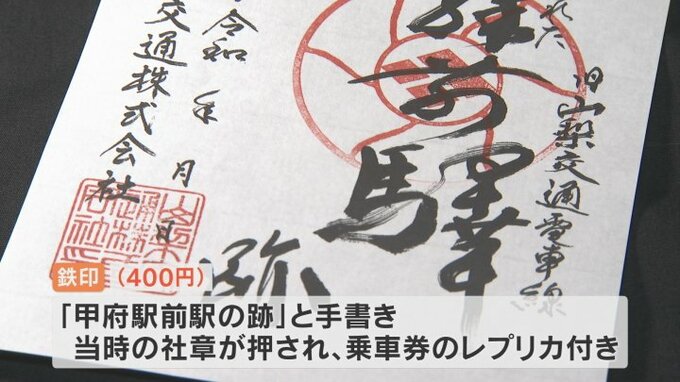 旧山梨交通電車線
駅前驛
跡
令和 年 月 日
交通株式会社
鉄印(400円)
「甲府駅前駅の跡」と手書き
当時の社章が押され、乗車券のレプリカ付き